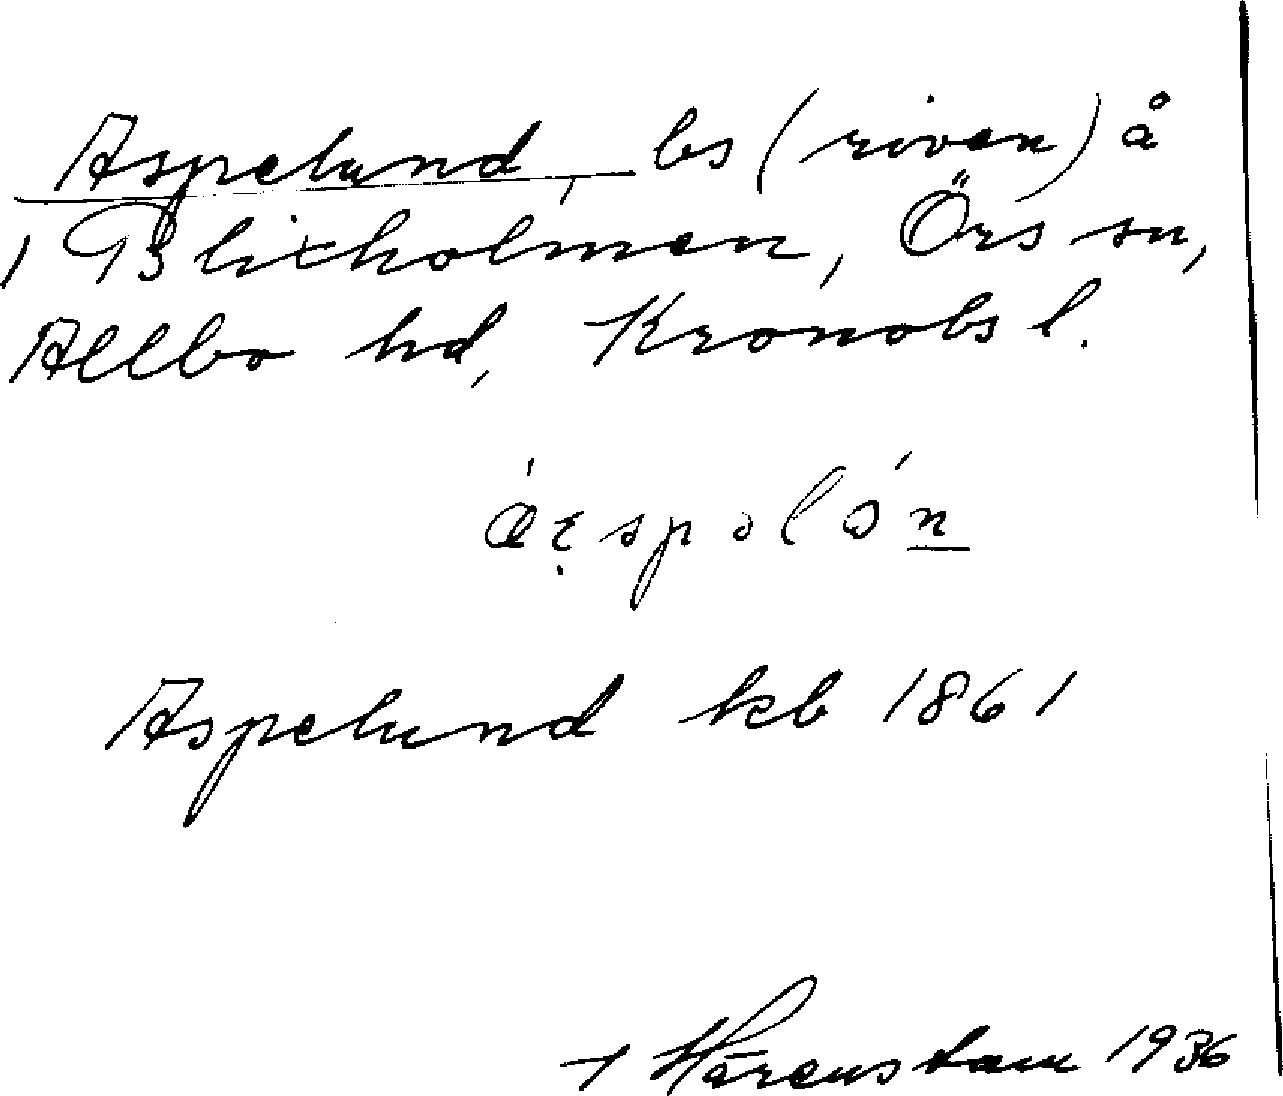 Aspelund, bs (riven) å
1 Blixholmen, Örs sn,
Allbo hd, Kronobs l.
Aspelund kb 1861
Härenstam 1936